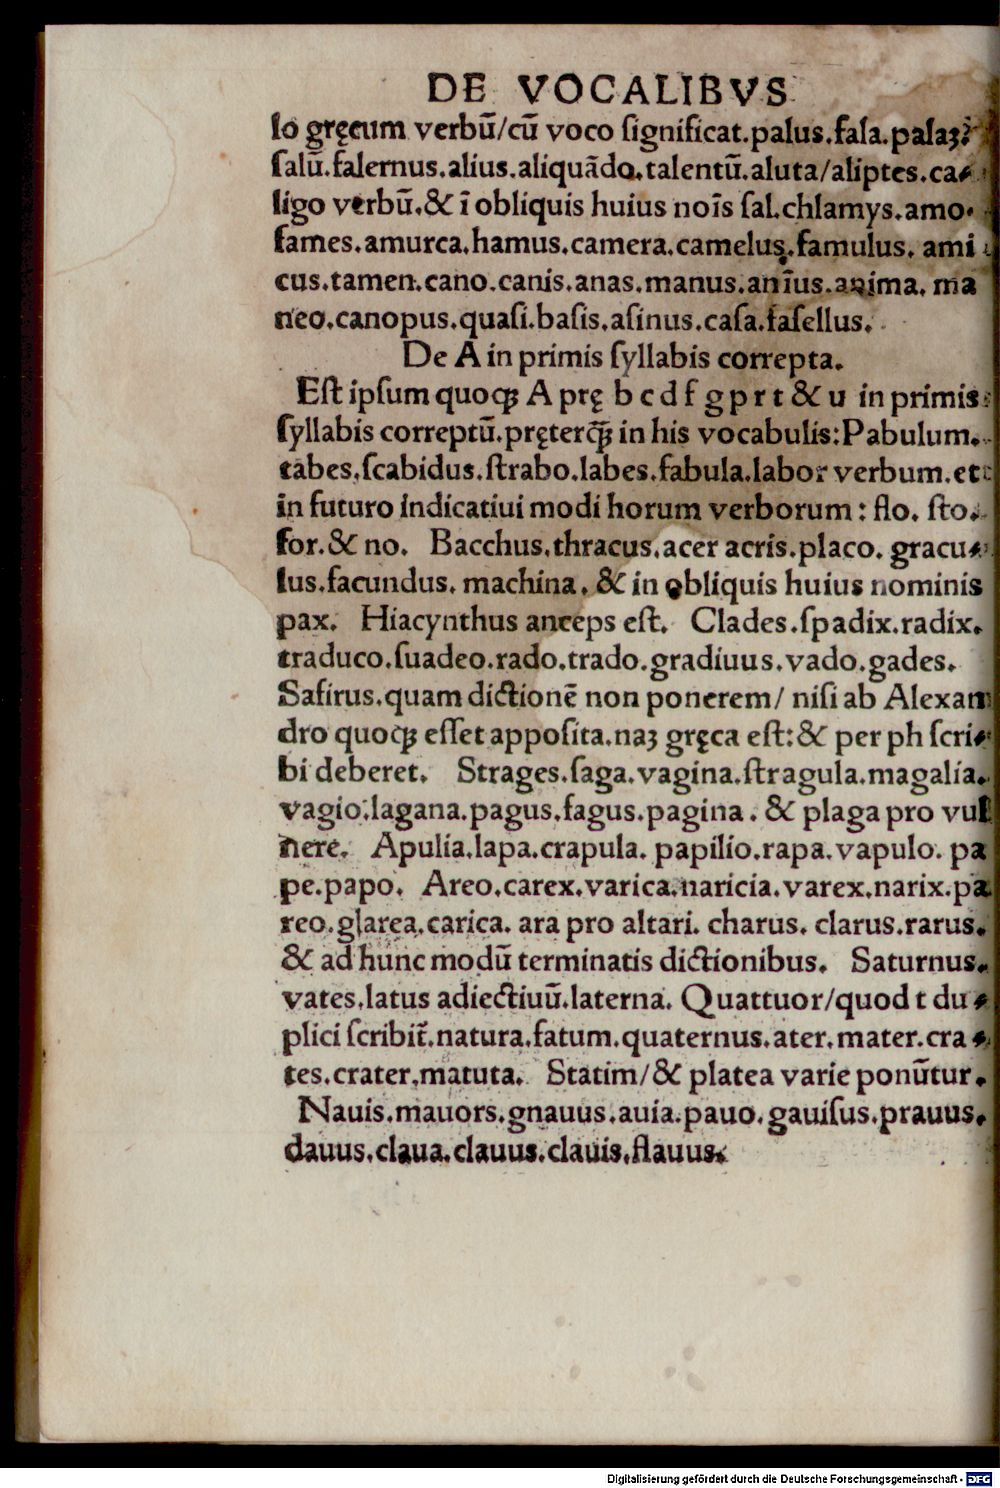 DE VOCALIBVS
lo gręcum verbū/cū voco ſignificat.palus.fala.palaꝫ.
ſalū.falernus.alius.aliquādo.talentū.aluta/aliptes.ca⸗
ligo verbū.& ī obliquis huius noīs ſal.chlamys.amo.
fames.amurca.hamus.camera.camelus.famulus. ami
cus.tamen.cano.canis.anas.manus.anīus.anima. ma
neo.canopus.quaſi.baſis.aſinus.caſa.faſellus.
De A in primis ſyllabis correpta.
Eſt ipſum quoqꝫ A prę b c d f g p r t & u in primis
ſyllabis correptū.pręterqꝫ̄ in his vocabulis:Pabulum.
tabes.ſcabidus.ſtrabo.labes.fabula.labor verbum.et
in futuro indicatiui modi horum verborum : flo. ſto.
for.& no. Bacchus.thracus.acer acris.placo. gracu⸗
lus.facundus. machina. & in obliquis huius nominis
pax. Hiacynthus anceps eſt. Clades.ſpadix.radix.
traduco.ſuadeo.rado.trado.gradiuus.vado.gades.
Safirus.quam dictionē non ponerem/ niſi ab Alexan
dro quoqꝫ eſſet appoſita.naꝫ gręca eſt:& per ph ſcri⸗
bi deberet. Strages.ſaga.vagina.ſtragula.magalia.
vagio.lagana.pagus.fagus.pagina. & plaga pro vul
nere. Apulia.lapa.crapula. papilio.rapa.vapulo. pa
pe.papo. Areo.carex.varica.naricia.varex.narix.pa
reo.glarea.carica. ara pro altari. charus. clarus.rarus.
& ad hunc modū terminatis dictionibus. Saturnus.
vates.latus adiectiuū.laterna. Quattuor/quod t du⸗
plici ſcribit̄.natura.fatum.quaternus.ater.mater.cra⸗
tes.crater.matuta. Statim/& platea varie ponūtur.
Nauis.mauors.gnauus.auia.pauo.gauiſus.prauus.
dauus.claua.clauus.clauis.flauus.
Digitalisierung gefördert durch die Deutsche Forschungsgemeinschaft - DFG